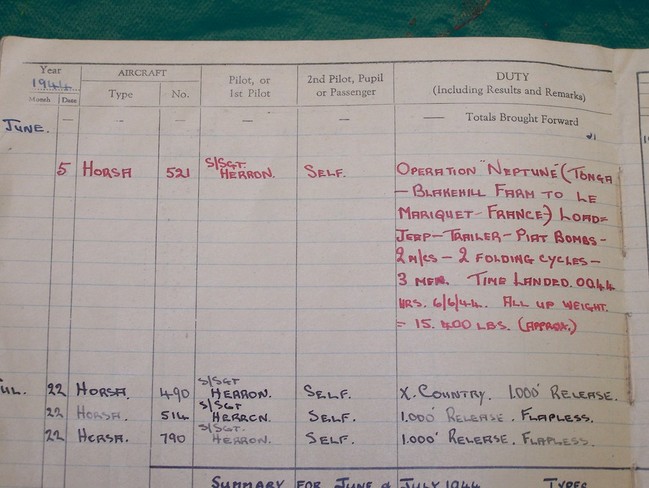 Year AIRCRAFT Pilot, or 2nd Pilot, Pupil DUTY
1944 1st Pilot or Passenger (Including Results and Remarks)
Month Date Type No.
— — — — — — Totals Brought Forward
JUNE.
5 HORSA 521 S/SGT. HERRON. SELF. OPERATION "NEPTUNE" (TONGA
— BLAKEHILL FARM TO LE
MARIQUET - FRANCE) LOAD=
JEEP - TRAILER - PIAT BOMBS -
2 M/CS - 2 FOLDING CYCLES -
3 MEN. TIME LANDED. 0044
HRS. 6/6/44. ALL UP WEIGHT.
= 15.400 LBS. (APPROX.)
JUL. 22 HORSA. 490 S/SGT HERRON. SELF. X. COUNTRY. 1000' RELEASE.
22 HORSA. 514 S/SGT HERRON. SELF. 1,000' RELEASE. FLAPLESS.
22 HORSA. 790 S/SGT. HERRON. SELF. 1.000' RELEASE. FLAPLESS.
SUMMARY FOR JUNE & JULY 1944 TYPES